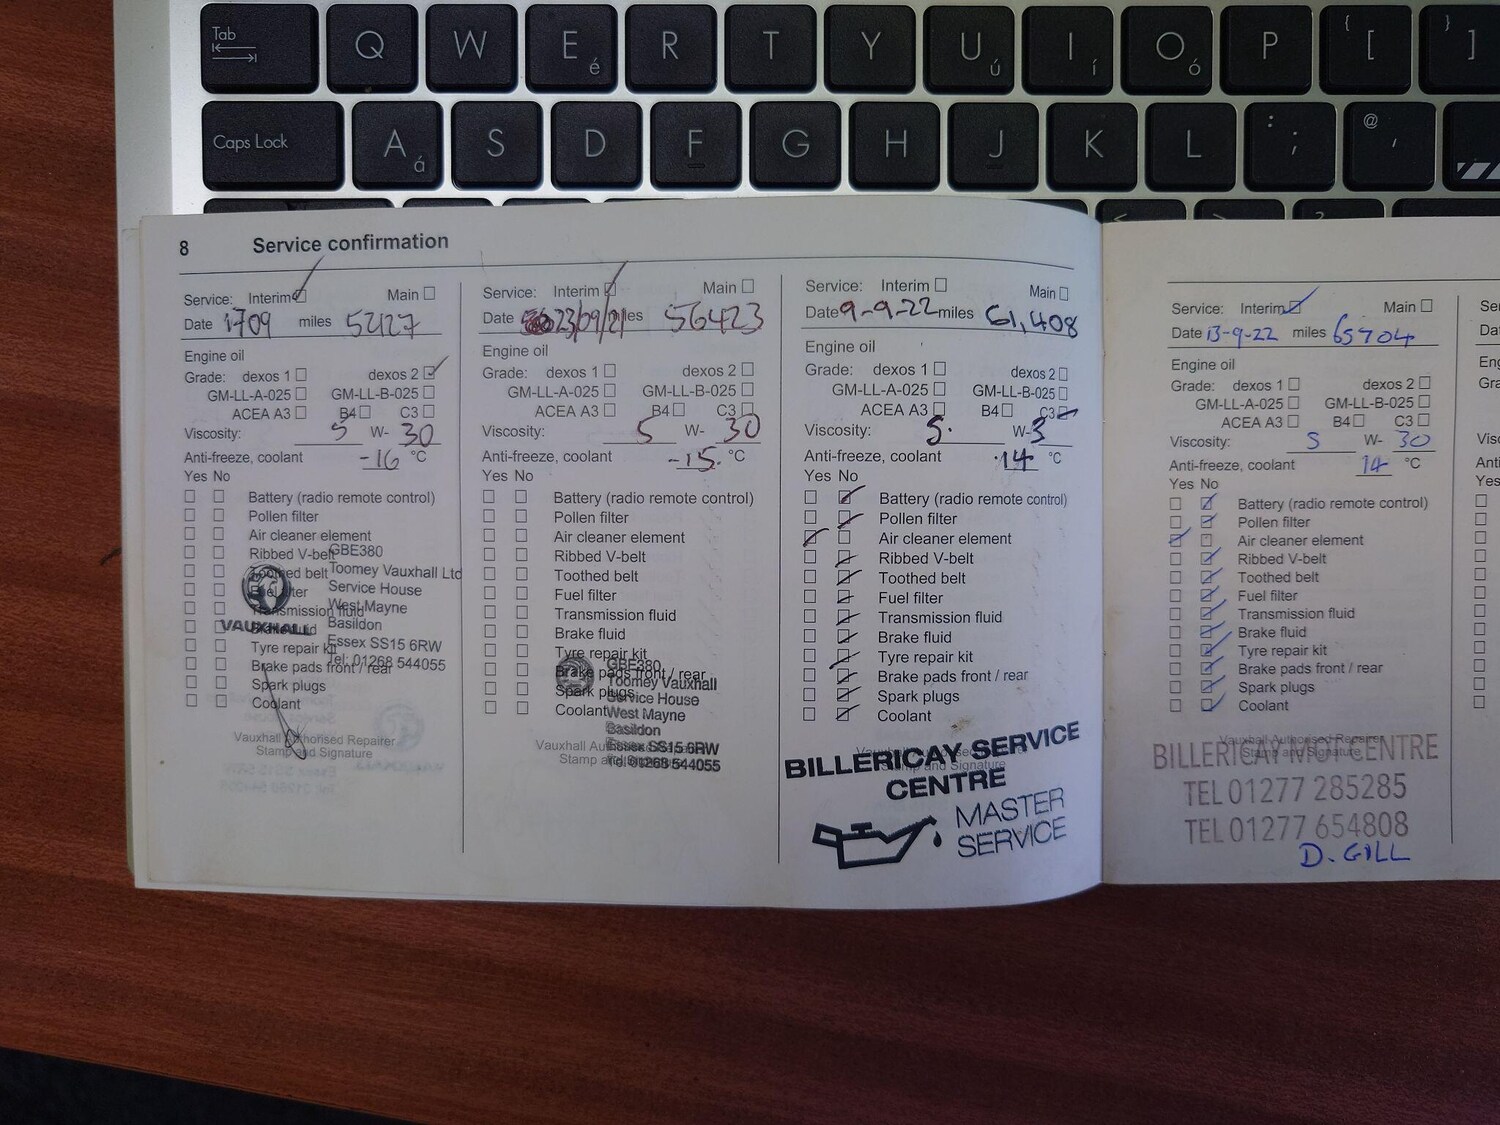 Tab Q W E é R T Y U ú I í O ó P { [ } ]
Caps Lock A á S D F G H J K L : ; @ '
< > ?
8 Service confirmation
Service: Interim Main
Date 1709 miles 52127
Engine oil
Grade: dexos 1 dexos 2
GM-LL-A-025 GM-LL-B-025
ACEA A3 B4 C3
Viscosity: 5 W- 30
Anti-freeze, coolant -16 °C
Yes No
Battery (radio remote control)
Pollen filter
Air cleaner element
Ribbed V-belt
Toothed belt
Fuel filter
Transmission fluid
Brake fluid
Tyre repair kit
Brake pads front / rear
Spark plugs
Coolant
GBE380
Toomey Vauxhall Ltd
Service House
West Mayne
Basildon
Essex SS15 6RW
Tel: 01268 544055
VAUXHALL
Vauxhall Authorised Repairer
Stamp and Signature
Service: Interim Main
Date 23/09/21 miles 56423
Engine oil
Grade: dexos 1 dexos 2
GM-LL-A-025 GM-LL-B-025
ACEA A3 B4 C3
Viscosity: 5 W- 30
Anti-freeze, coolant -15. °C
Yes No
Battery (radio remote control)
Pollen filter
Air cleaner element
Ribbed V-belt
Toothed belt
Fuel filter
Transmission fluid
Brake fluid
Tyre repair kit
Brake pads front / rear
Spark plugs
Coolant
GBE380
Toomey Vauxhall
Service House
West Mayne
Basildon
Essex SS15 6RW
Tel: 01268 544055
Vauxhall Authorised
Stamp and
Service: Interim Main
Date 9-9-22 miles 61,408
Engine oil
Grade: dexos 1 dexos 2
GM-LL-A-025 GM-LL-B-025
ACEA A3 B4 C3
Viscosity: 5. W-3
Anti-freeze, coolant -14 °C
Yes No
Battery (radio remote control)
Pollen filter
Air cleaner element
Ribbed V-belt
Toothed belt
Fuel filter
Transmission fluid
Brake fluid
Tyre repair kit
Brake pads front / rear
Spark plugs
Coolant
Stamp and Signature
BILLERICAY SERVICE
CENTRE
MASTER
SERVICE
Service: Interim Main
Date 13-9-22 miles 65704
Engine oil
Grade: dexos 1 dexos 2
GM-LL-A-025 GM-LL-B-025
ACEA A3 B4 C3
Viscosity: 5 W- 30
Anti-freeze, coolant 14 °C
Yes No
Battery (radio remote control)
Pollen filter
Air cleaner element
Ribbed V-belt
Toothed belt
Fuel filter
Transmission fluid
Brake fluid
Tyre repair kit
Brake pads front / rear
Spark plugs
Coolant
Vauxhall Authorised Repairer
Stamp and Signature
BILLERICAY MOT CENTRE
TEL 01277 285285
TEL 01277 654808
D. GILL
Yes